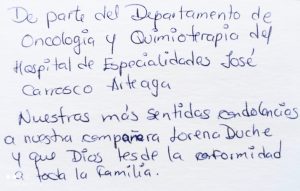 De parte del Departamento de
Oncología y Quimioterapia del
Hospital de Especialidades José
Carrasco Arteaga
Nuestras más sentidas condolencias
a nuestra compañera Lorena Duche
y que Dios les de la conformidad
a toda la familia.